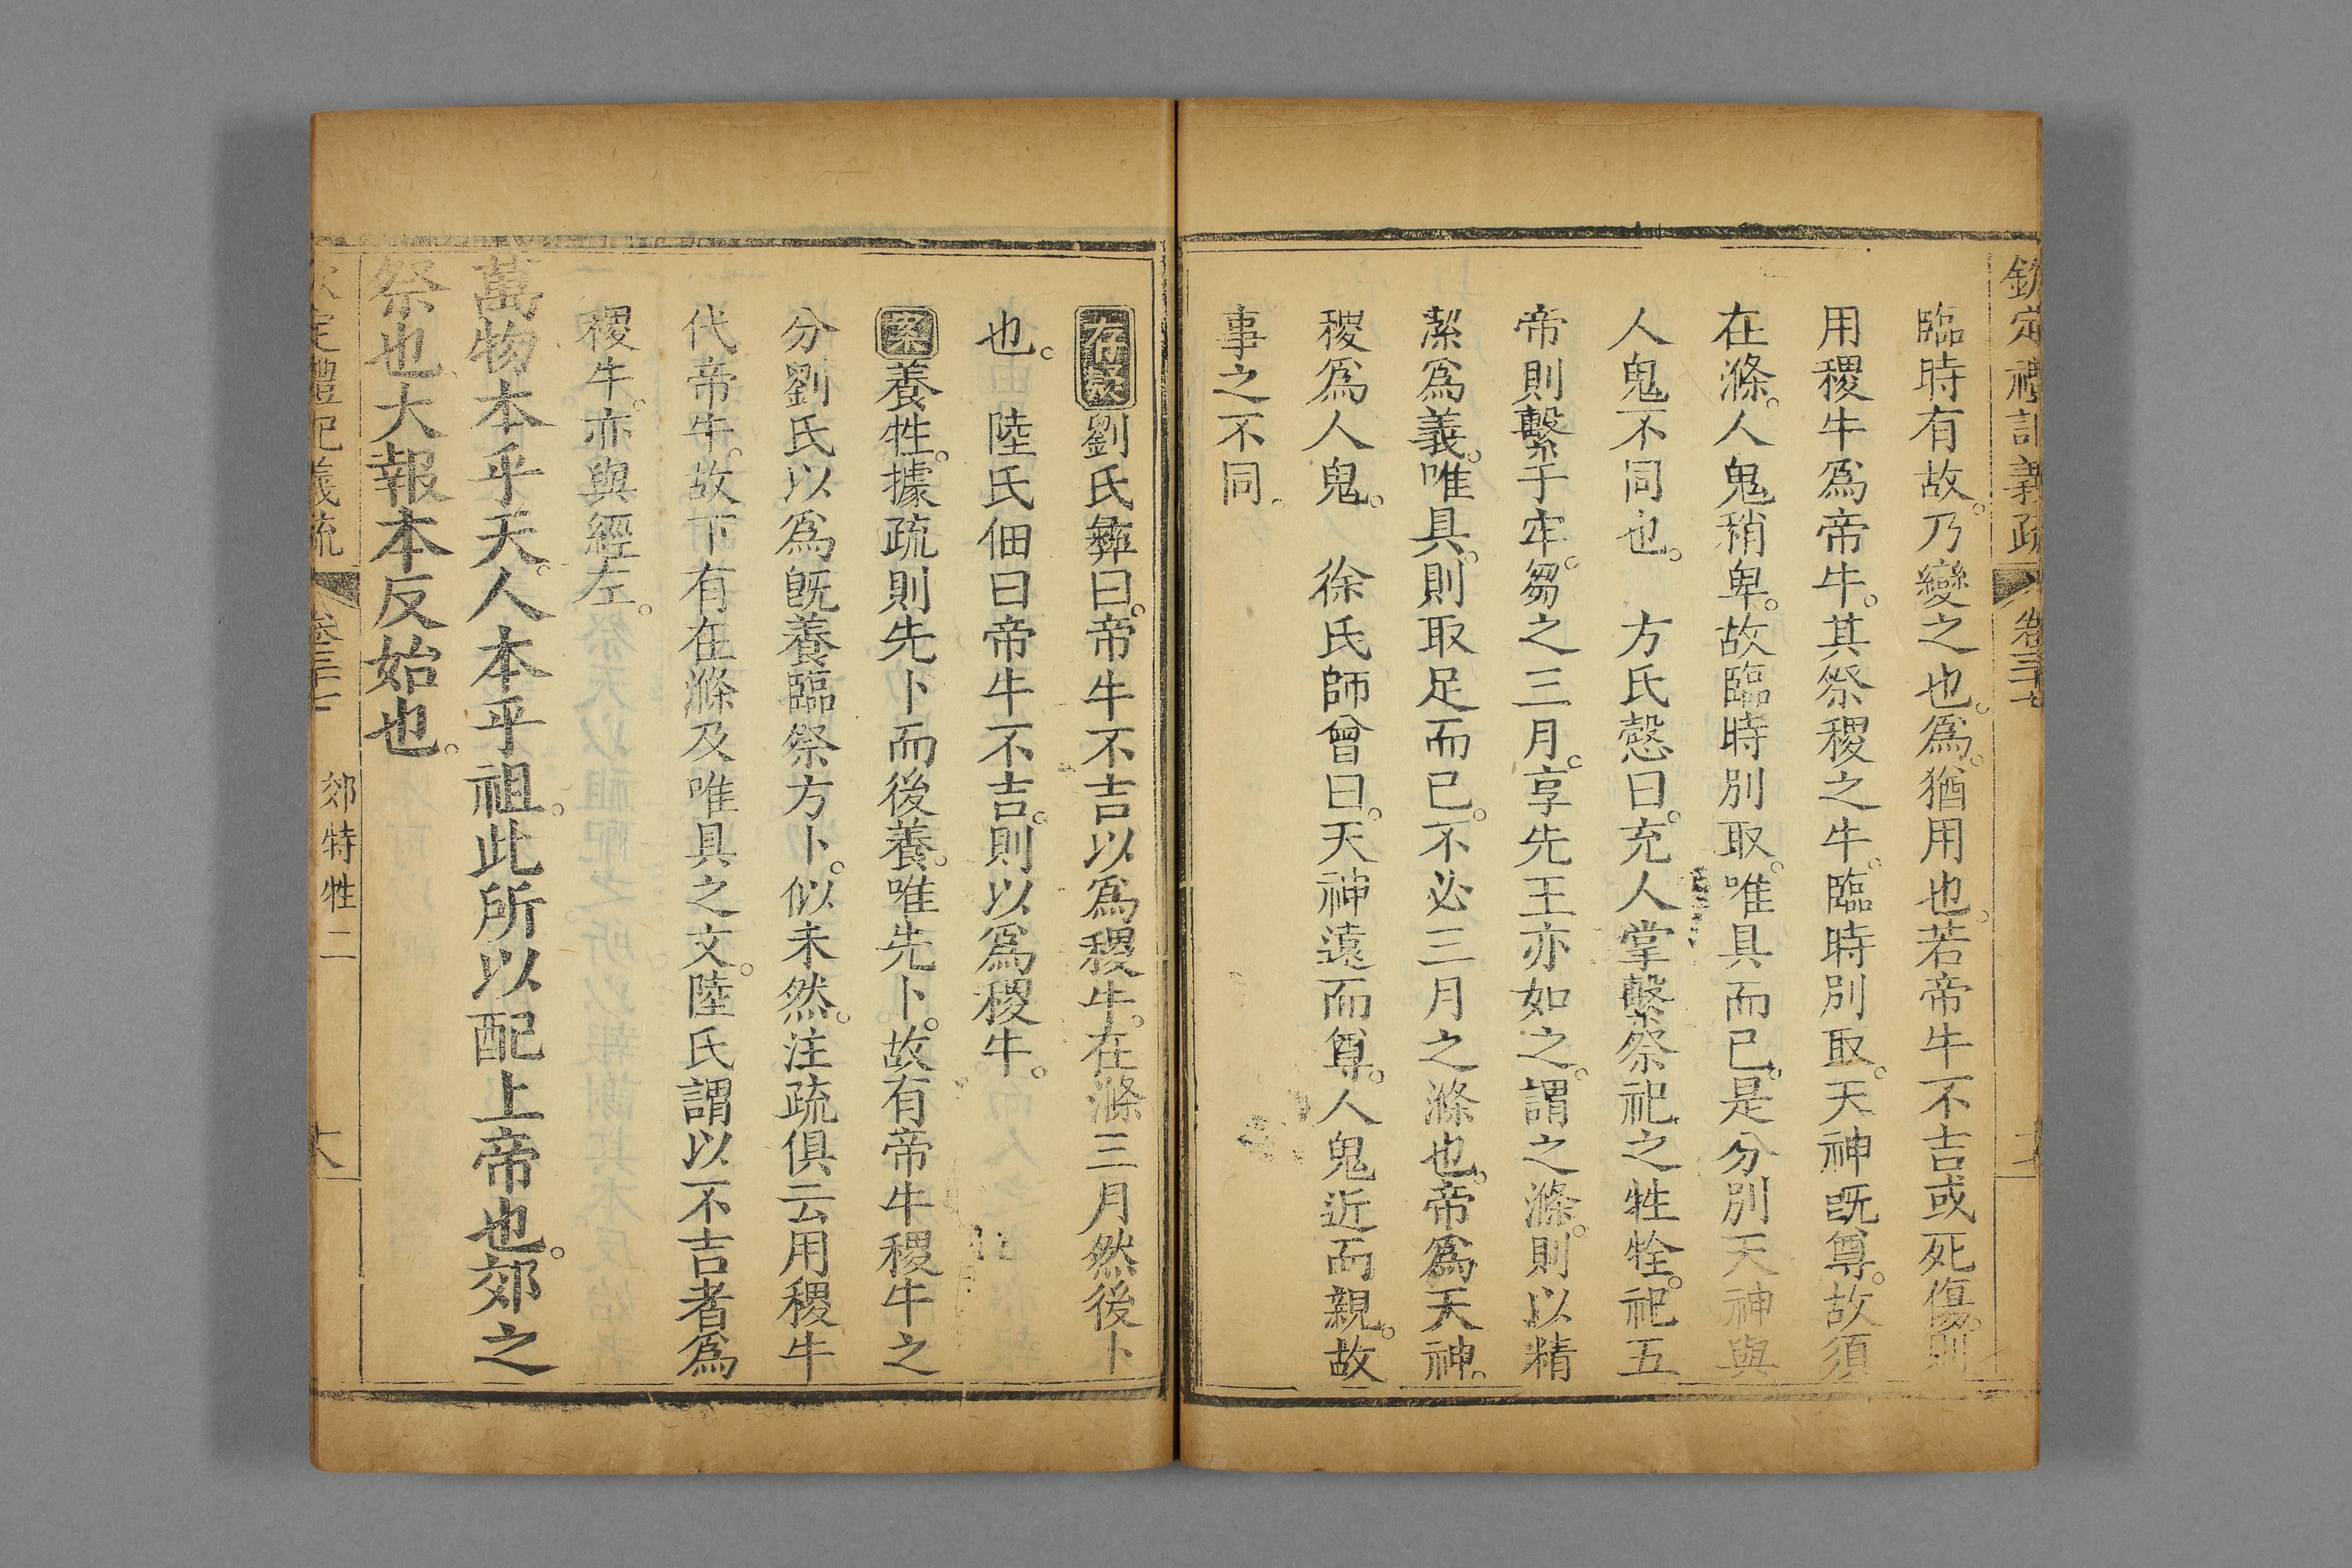 欽定禮記義疏 卷三十七
臨時有故。乃變之也。爲。猶用也。若帝牛不吉或死傷。則
用稷牛爲帝牛。其祭稷之牛。臨時別取。天神既尊。故須
在滌。人鬼稍卑。故臨時別取。唯具而已。是分別天神與
人鬼不同也。 方氏慤曰。充人掌繫祭祀之牲牷。祀五
帝則繫于牢。芻之三月。享先王亦如之。謂之滌。則以精
潔爲義。唯具。則取足而已。不必三月之滌也。帝爲天神。
稷爲人鬼。 徐氏師曾曰。天神遠而尊。人鬼近而親。故
事之不同。
存疑劉氏彝曰。帝牛不吉以爲稷牛。在滌三月然後卜
也。 陸氏佃曰帝牛不吉。則以爲稷牛。
案養牲。據疏則先卜而後養。唯先卜。故有帝牛稷牛之
分劉氏以爲旣養臨祭方卜。似未然。注疏俱云用稷牛
代帝牛。故下有在滌及唯具之文。陸氏謂以不吉者爲
稷牛。亦與經左。
萬物本乎天。人本乎祖。此所以配上帝也。郊之
祭也大報本反始也。
欽定禮記義疏 卷三十七 郊特牲二